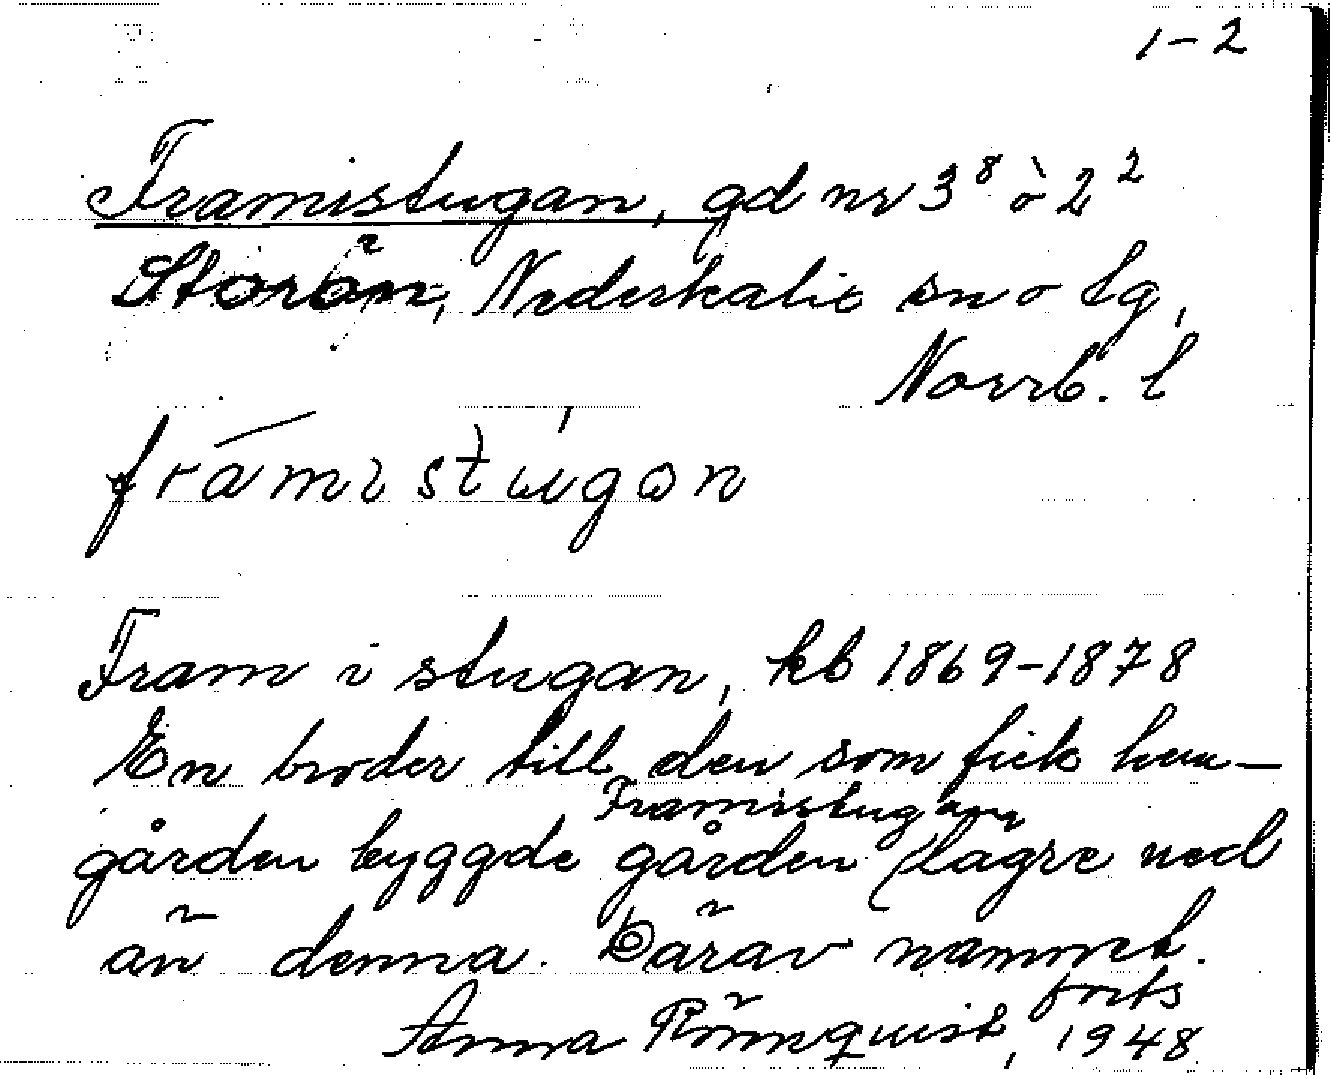 1-2
Framistugan, gd nr 3⁸ o 2²
Storön, Nederkalix sn o tg,
Norrb. l
framistugan
Fram i stugan, kb 1869-1878
En broder till den som fick hem-
Framistugan
gården byggde gården lägre ned
än denna. Därav namnet.
forts
Anna Rönnquist, 1948